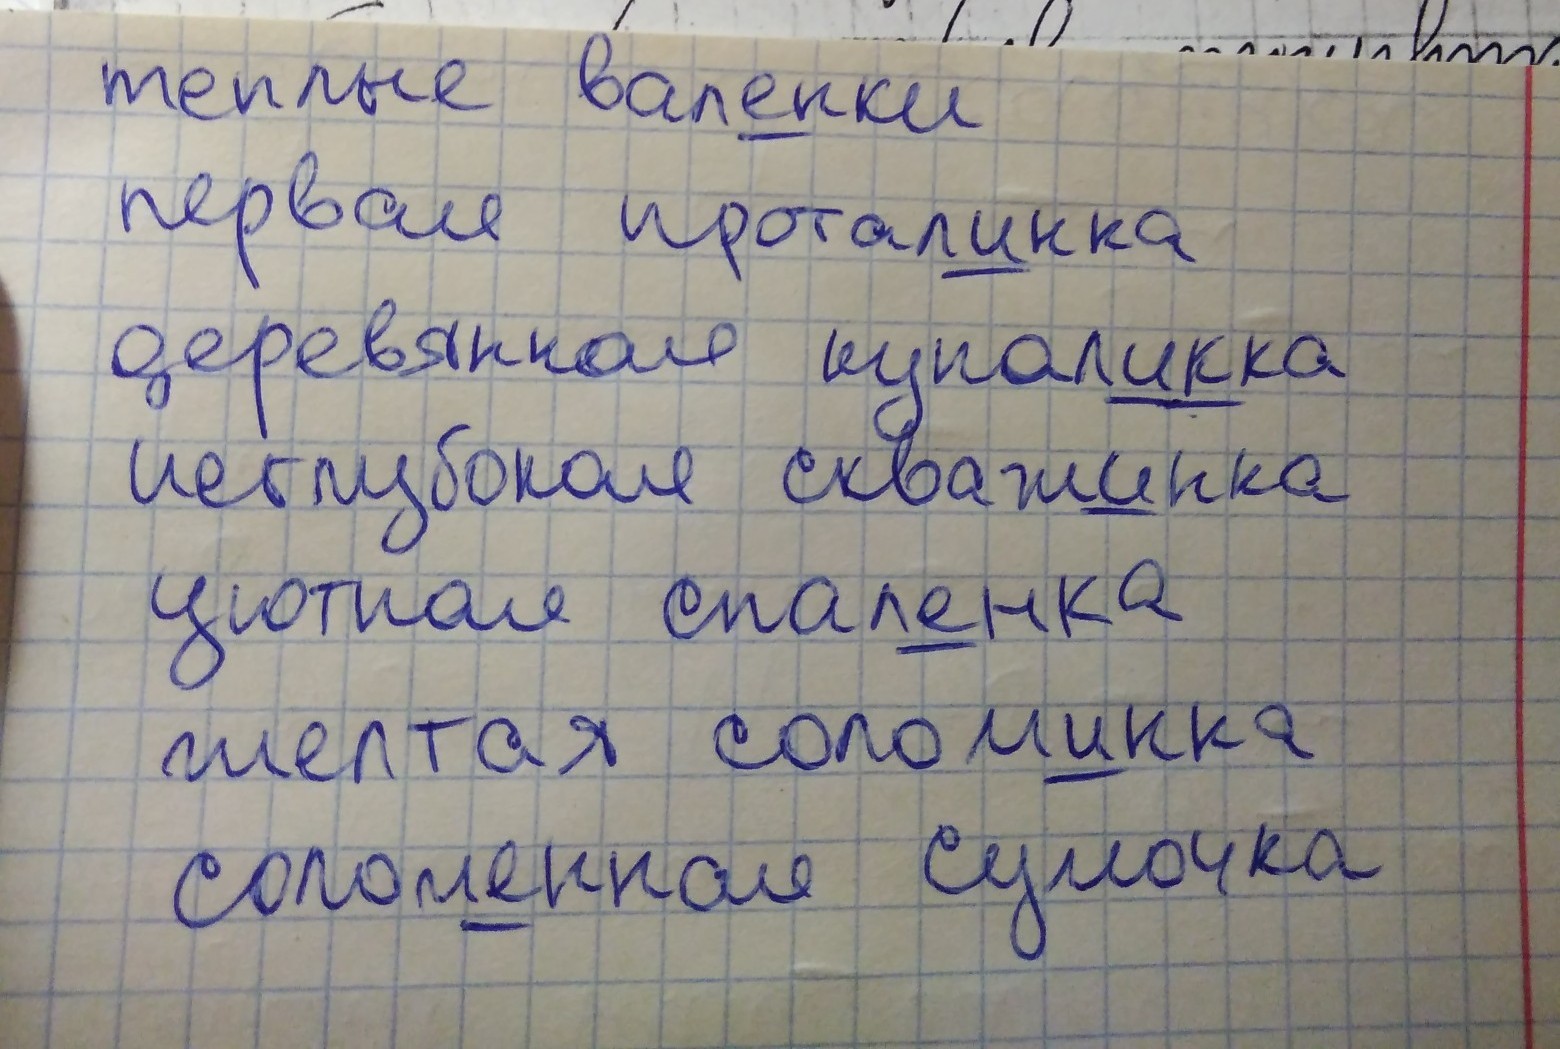 теплые валенки
первая проталинка
деревянная купалинка
неглубокая скважинка
уютная спаленка
желтая соломинка
соломенная сумочка